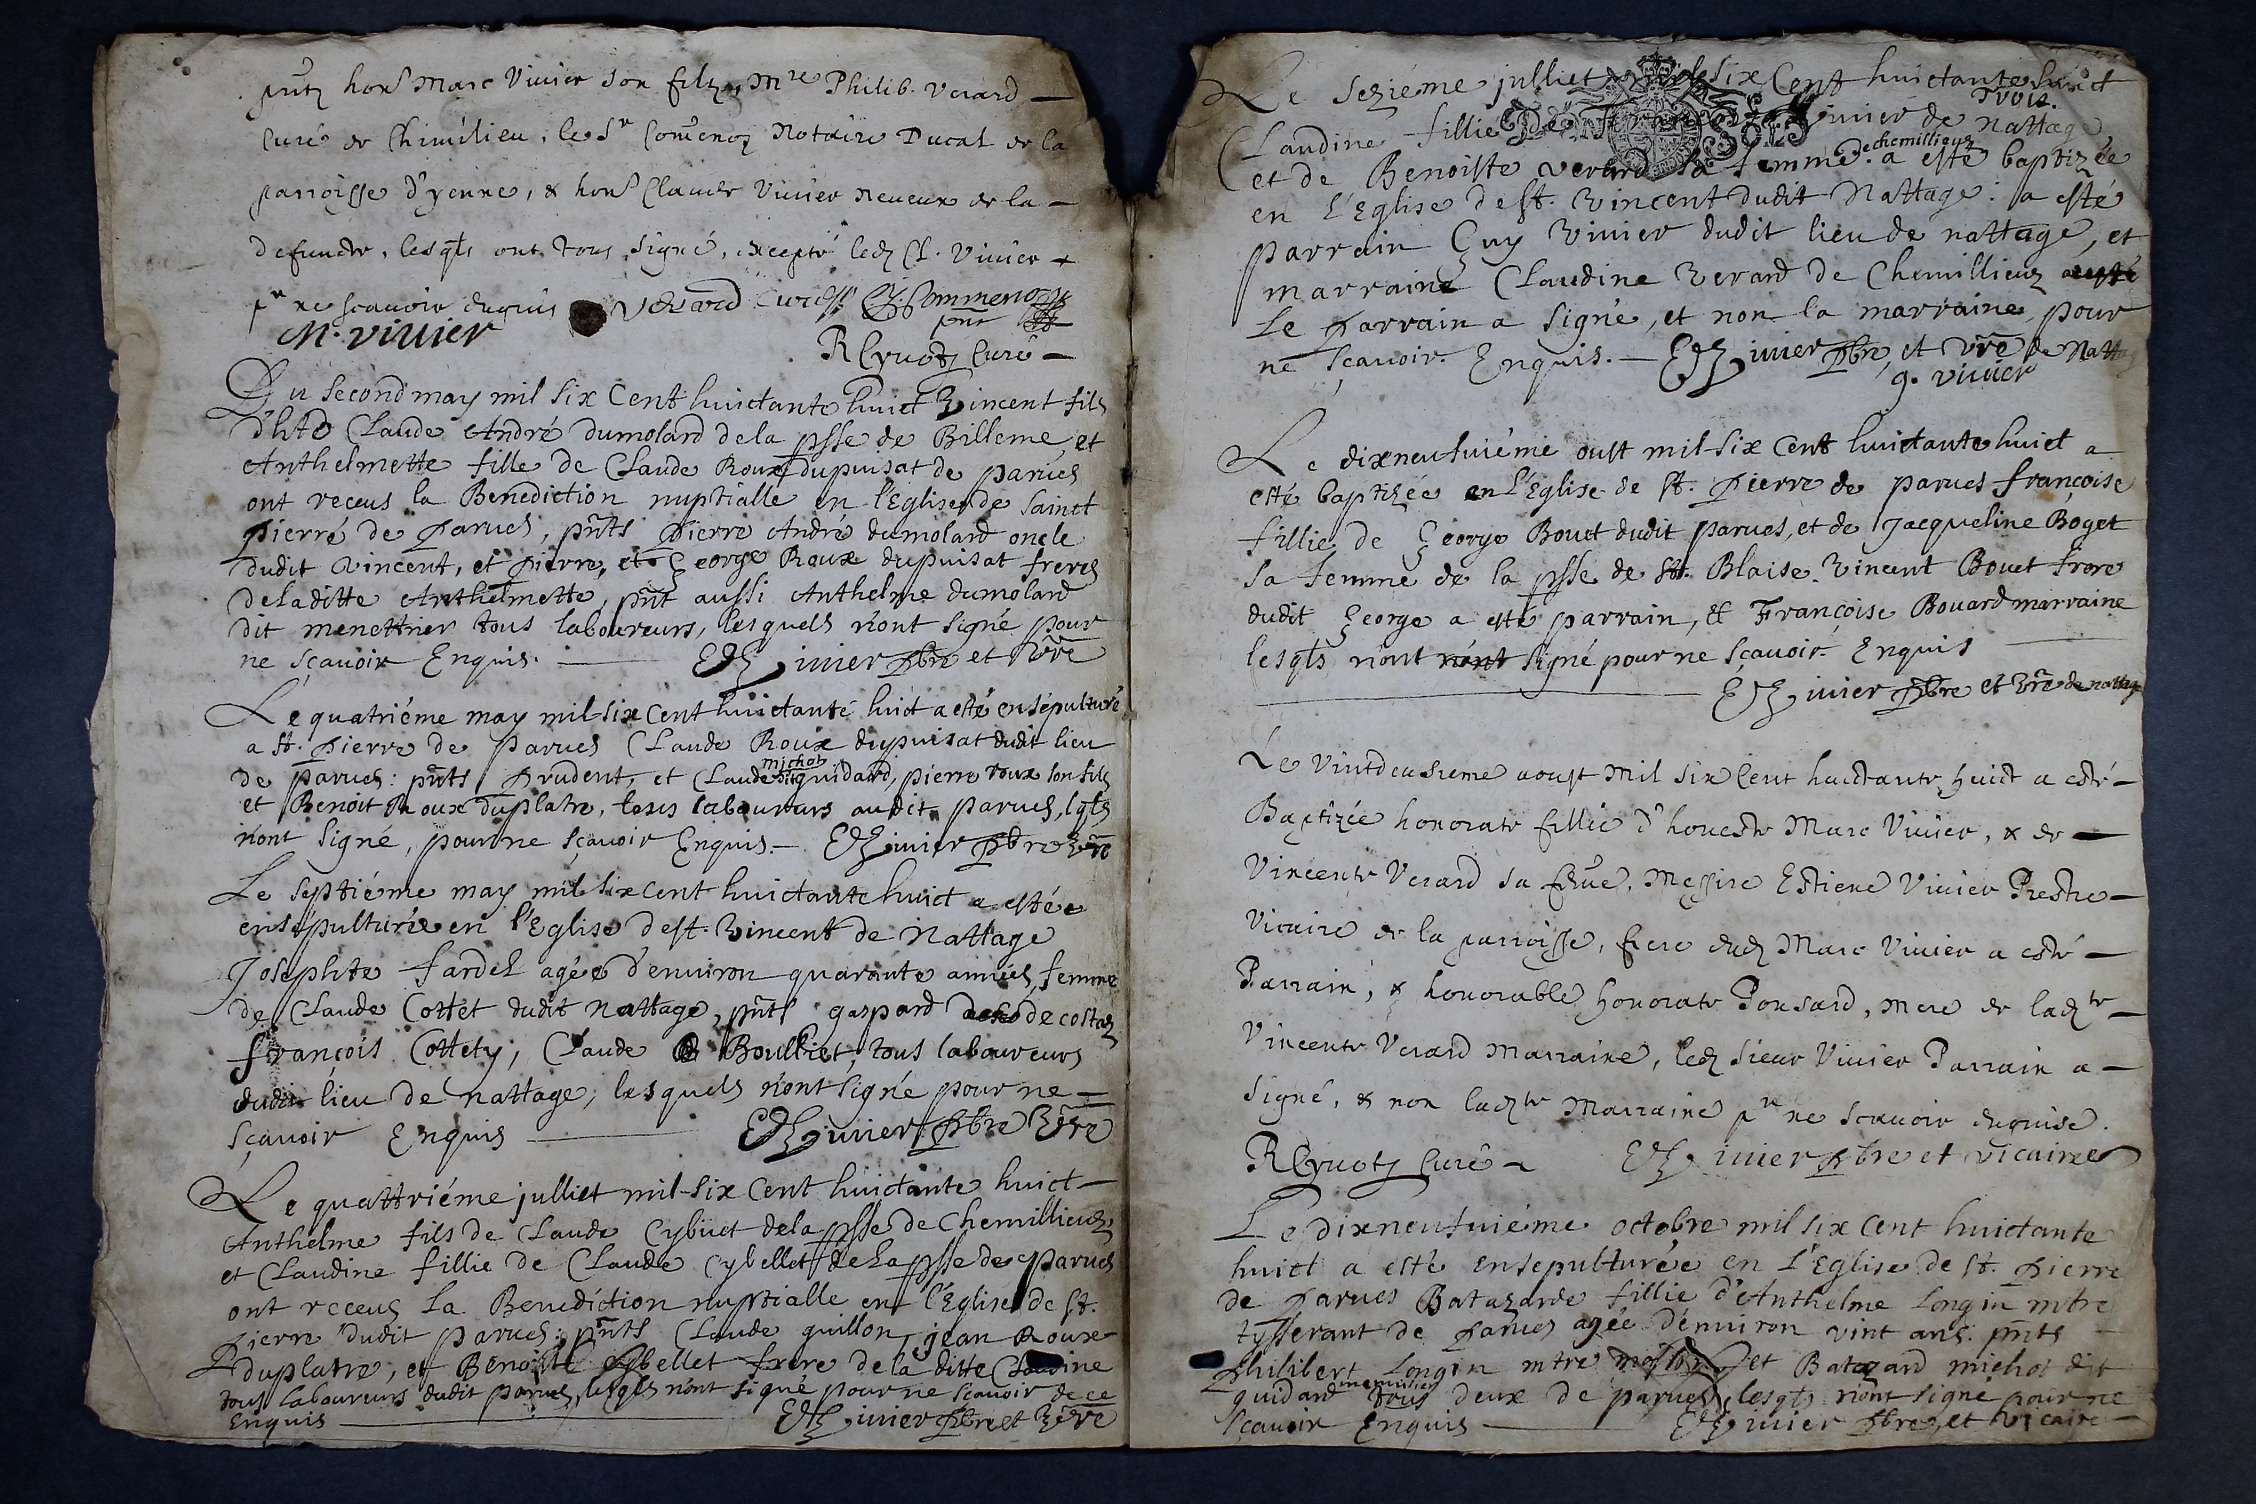 pntz hon. Marc Vivier son filz, Mre Philib. Verard
Curé de Chimilieu, le Sr Comenoz Notaire Ducal de la
parroisse d'yenne, & hon. Claude Vivier neveux de la
defuncte, lesqls ont tous signé, excepté ledz Cl. Vivier
pr ne scavoir enquis Verard Curé Commenoz
M. Vivier pnt
R Cruotz Curé
Du second may mil six Cent huictante huict Vincent fils
d'hte Claude André dumolard de la psse de Billeme et
Anthelmette fille de Claude Roux dupuisat de parves
ont receus la Benediction nuptialle en l'Eglise de Sainct
pierre de Parves, pnts Pierre André dumolard oncle
dudit vincent, et pierre, et George Roux dupuisat freres
de la ditte Anthelmette, pnt aussi Anthelme dumolard
dit menettrier tous laboureurs, lesquels n'ont signé pour
ne sçavoir Enquis. E Vivier Pbre et vre
Le quatriéme may mil six Cent huictante huict a esté ensépulturé
a St. Pierre de parves Claude Roux dupuisat dudit lieu
michot
de parves: pnts Prudent, et Claude dit guidard, pierre roux son fils
et Benoit Roux duplatre, tous laboureurs audit parves, lqls
n'ont signé, pour ne sçavoir Enquis. E Vivier Pbre vre
Le septiéme may mil six cent huictante huict a estée
ensépulturée en l'Eglise de St. Vincent de Nattage
Josephte fardel agée d'environ quarante années, femme
de Claude Cottet dudit Nattage, pnts gaspard de costaz
françois Cottety, Claude Boulliet, tous laboureurs
dudit lieu de nattage, lesquels n'ont signé pour ne
sçavoir Enquis E Vivier Pbre Vre
Le quattriéme julliet mil six Cent huictante huict
Anthelme fils de Claude Cybüet de la psse de Chemillieuz
et Claudine fillie de Claude Cybellet de la psse de Parves
ont receus la Benediction nuptialle en l'Eglise de St.
Pierre dudit parves: pnts Claude guillon, jean Roux
duplatre, et Benoist Cybellet frere de la ditte Claudine
tous laboureurs dudit parves, lesqls n'ont signé pour ne sçavoir de ce
Enquis E Vivier Pbre et Vre
Le seziéme julliet six Cent huictante huict
trois.
Claudine fillie de Vivier de nattage
de chemillieuz
et de Benoiste verard sa femme a esté baptizée
en l'Eglise de St. Vincent dudit Nattage: a esté
parrain Guy Vivier dudit lieu de nattage, et
marraine Claudine Verard de Chemillieuz a esté
Le Parrain a signé, et non la marraine, pour
ne sçavoir Enquis. E Vivier Pbre, et vre de Nattage
g. vivier
Le dixneufuiéme oust mil six Cent huictante huict a
esté baptizée en l'Eglise de St. Pierre de parves françoise
fillie de George Bouet dudit parves, et de Jacqueline Boget
sa femme de la psse de St. Blaise. Vincent Bouet frere
dudit George a esté parrain, et Françoise Bouard marraine
lesqls n'ont n'ont signé pour ne sçavoir. Enquis
E Vivier Pbre et Vre de nattage
Le vintdeusieme aoust Mil six Cent huictante huict a esté
Baptizée honorate fillie d'honeste Marc Vivier, & de
Vincente Verard sa feme. Messire Estiene Vivier Prestre
Vicaire de la parroisse, frere dudz Marc Vivier a esté
Parrain, & honorable honorate Ponsard, mere de ladte
Vincente Verard Marraine, ledz sieur Vivier Parrain a
signé, & non ladte Marraine pr ne scavoir enquise.
R Cruotz Curé E Vivier Pbre et vicaire
Le dixneufuiéme octobre mil six Cent huictante
huict a esté ensepulturée en l'Eglise de St. Pierre
de Parves Batazarde fillie d'Anthelme Longin mtre
tysserant de Parves agée d'environ vint ans. pnts
Philibert Longin mtre et Batazard michot dit
menusier
guidard tous deux de parves, lesqls n'ont signé pour ne
sçavoir Enquis E Vivier Pbre, et Vicaire